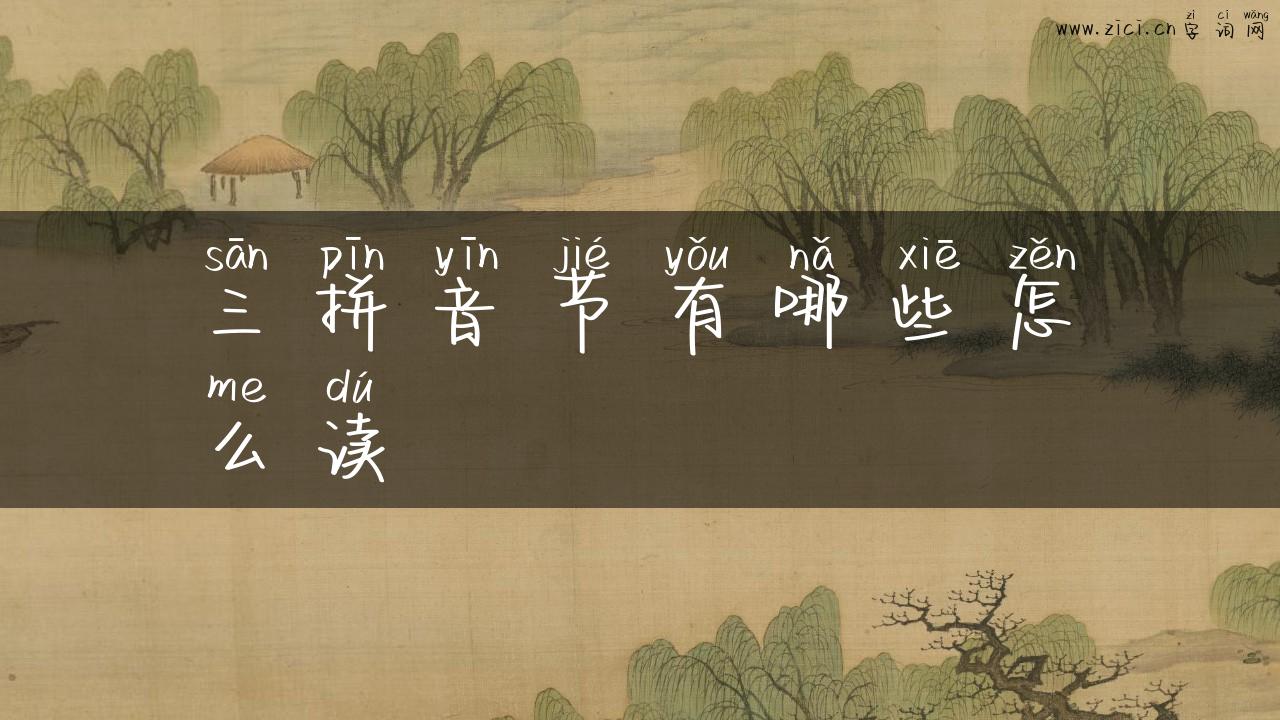 zì cí wǎng
www.zici.cn 字 词 网
sān pīn yīn jié yǒu nǎ xiē zěn
三 拼 音 节 有 哪 些 怎
me dú
么 读